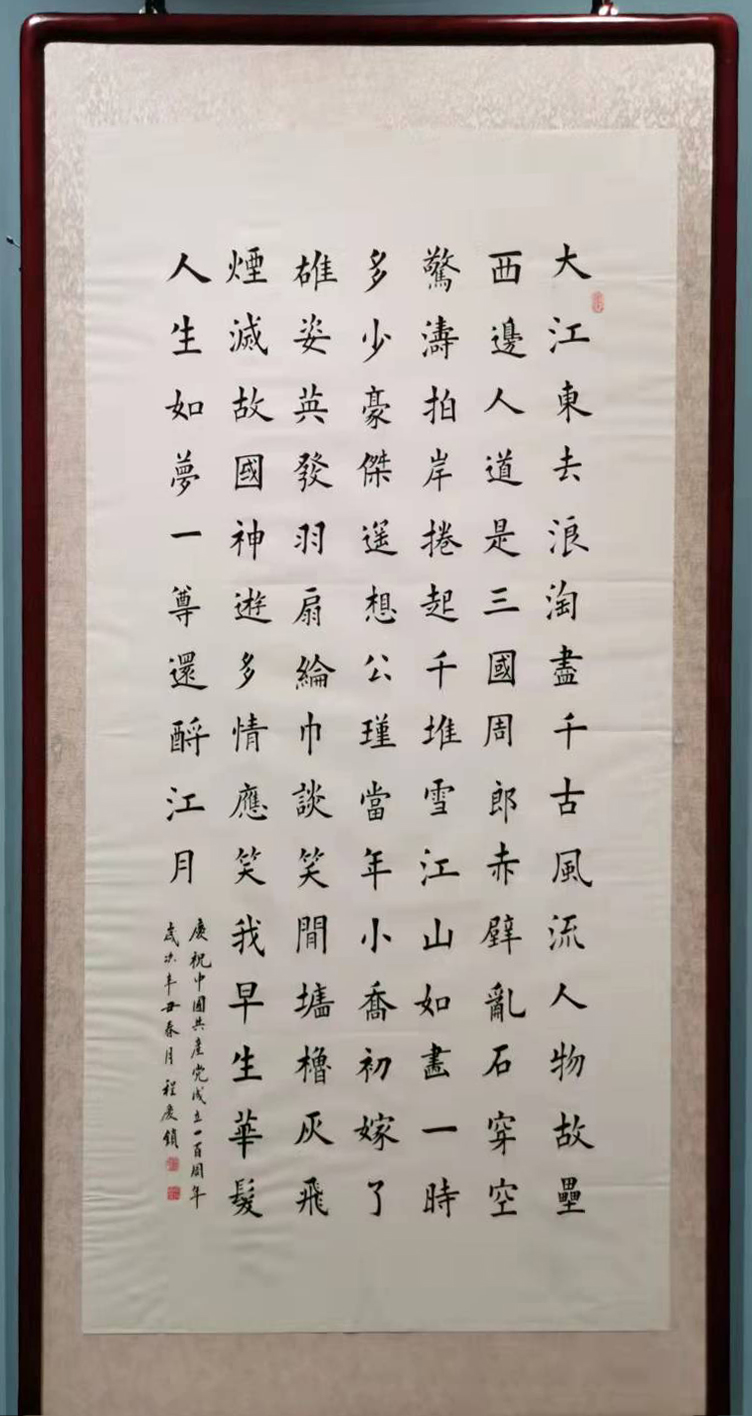 大江東去浪淘盡千古風流人物故壘
西邊人道是三國周郎赤壁亂石穿空
驚濤拍岸捲起千堆雪江山如畫一時
多少豪傑遥想公瑾當年小喬初嫁了
雄姿英發羽扇綸巾談笑間墻櫓灰飛
煙滅故國神遊多情應笑我早生華髮
人生如夢一尊還酹江月
慶祝中國共產党成立一百周年
歲次辛丑春月程慶鎖